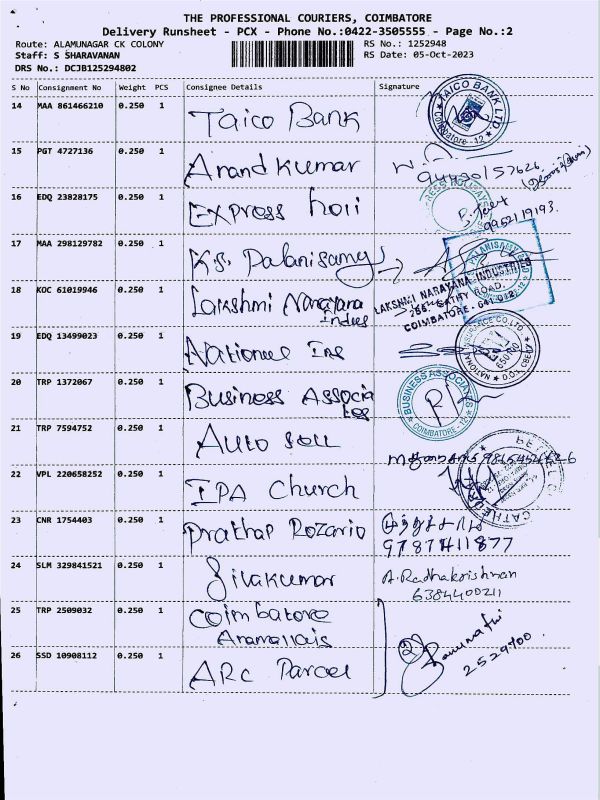 THE PROFESSIONAL COURIERS, COIMBATORE
Delivery Runsheet - PCX - Phone No.:0422-3505555 - Page No.:2
Route: ALAMUNAGAR CK COLONY
RS No.: 1252948
Staff: S SHARAVANAN
RS Date: 05-Oct-2023
DRS No.: DCJB125294802
S No Consignment No Weight PCS Consignee Details Signature
14 MAA 861466210 0.250 1 Taico Bank
TAICO BANK LTD.
Coimbatore - 12
15 PGT 4727136 0.250 1 Anand Kumar
9449015 7626
16 EDQ 23828175 0.250 1 Express holi
EXPRESS HOLIDAYS
9952119193.
17 MAA 298129782 0.250 1 K.S. Palanisamy
PALANISAMY
18 KOC 61019946 0.250 1 Lakshmi Narayana
Indus
LAKSHMI NARAYANA INDUSTRIES
SATHY ROAD,
COIMBATORE - 641 012.
19 EDQ 13499023 0.250 1 National Ins
INSURANCE CO. LTD.
650700
NATIONAL
D.O. CBE
20 TRP 1372067 0.250 1 Business Associa
tes
BUSINESS ASSOCIATES
COIMBATORE-12
21 TRP 7594752 0.250 1 Auto sell
22 VPL 220658252 0.250 1 IPA Church
23 CNR 1754403 0.250 1 Prathap Rozario
9787411877
24 SLM 329841521 0.250 1 Sivakumar
A. Radhakrishnan
6384400211
25 TRP 2509032 0.250 1 Coimbatore
26 SSD 10908112 0.250 1 ARC Parcel
2529700